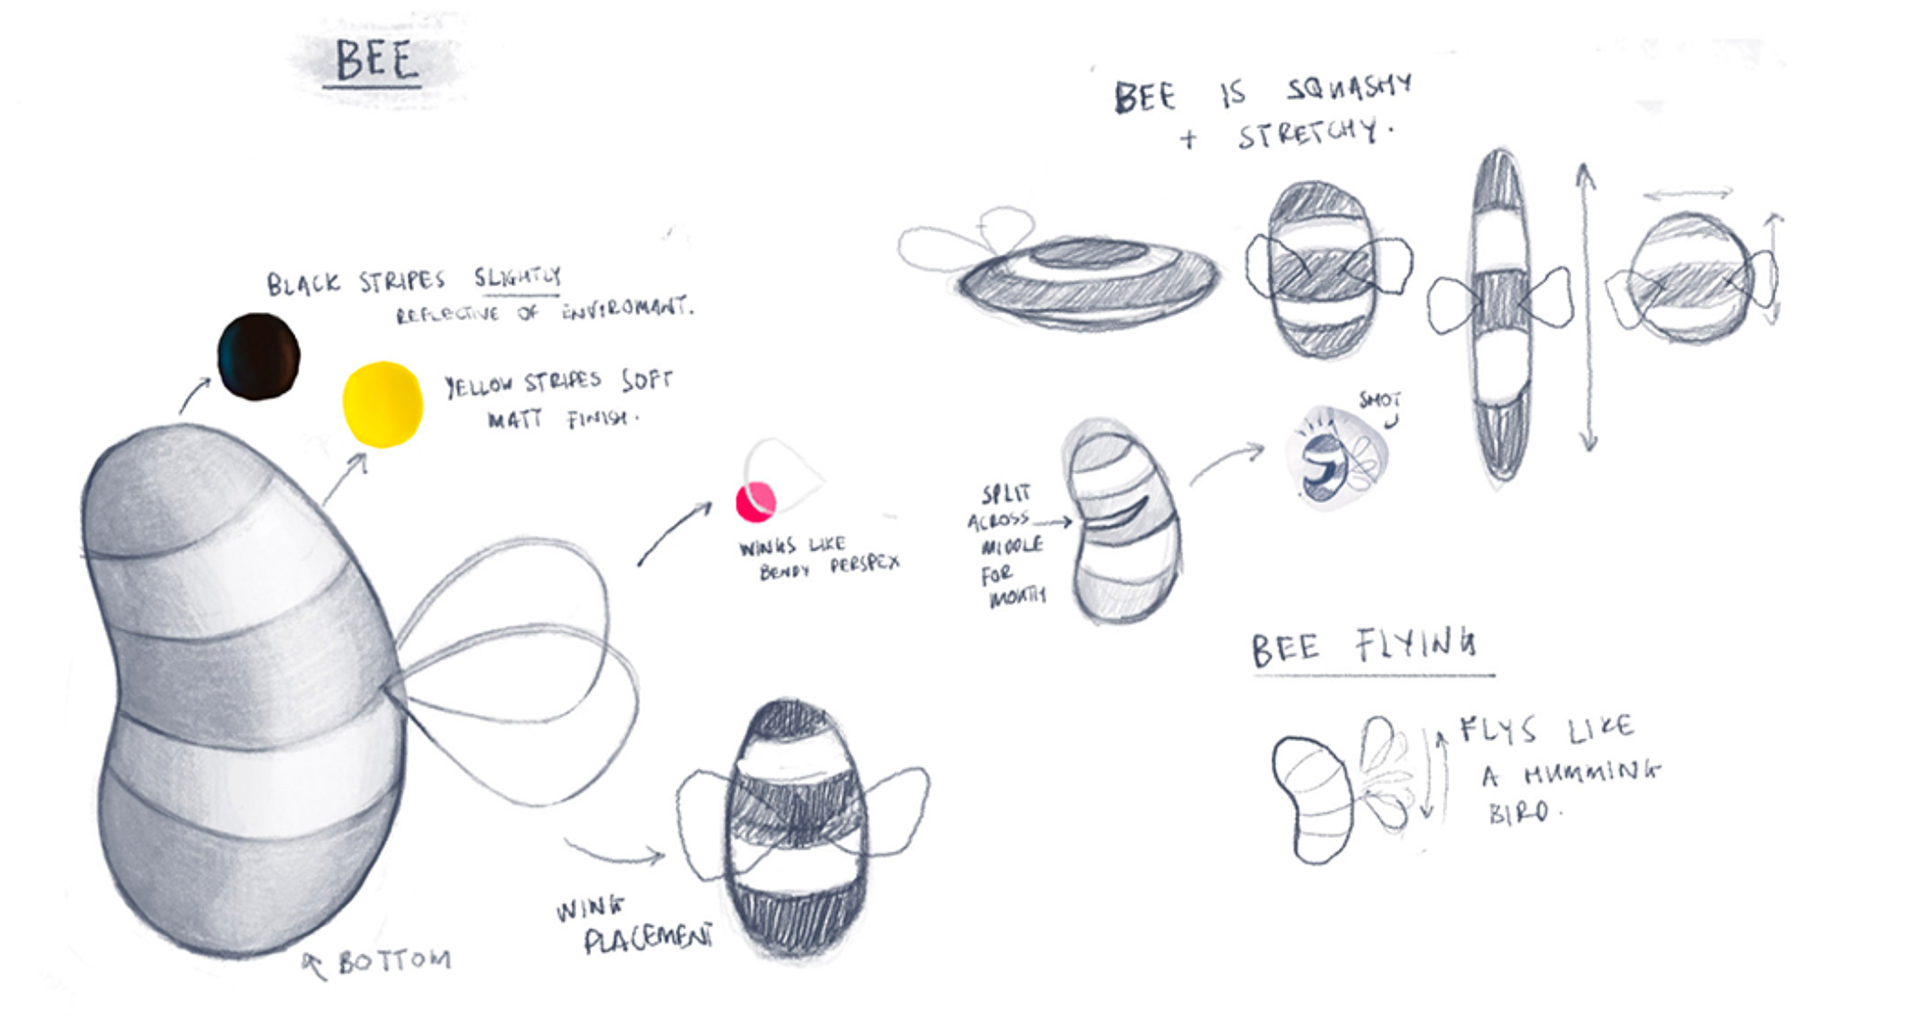 BEE
BEE IS SQUASHY
+ STRETCHY.
BLACK STRIPES SLIGHTLY
REFLECTIVE OF ENVIROMANT.
YELLOW STRIPES SOFT
MATT FINISH.
WINGS LIKE
BENDY PERSPEX
SPLIT
ACROSS
MIDDLE
FOR
MOUTH
BEE FLYING
FLYS LIKE
A HUMMING
BIRD.
WING
PLACEMENT
BOTTOM